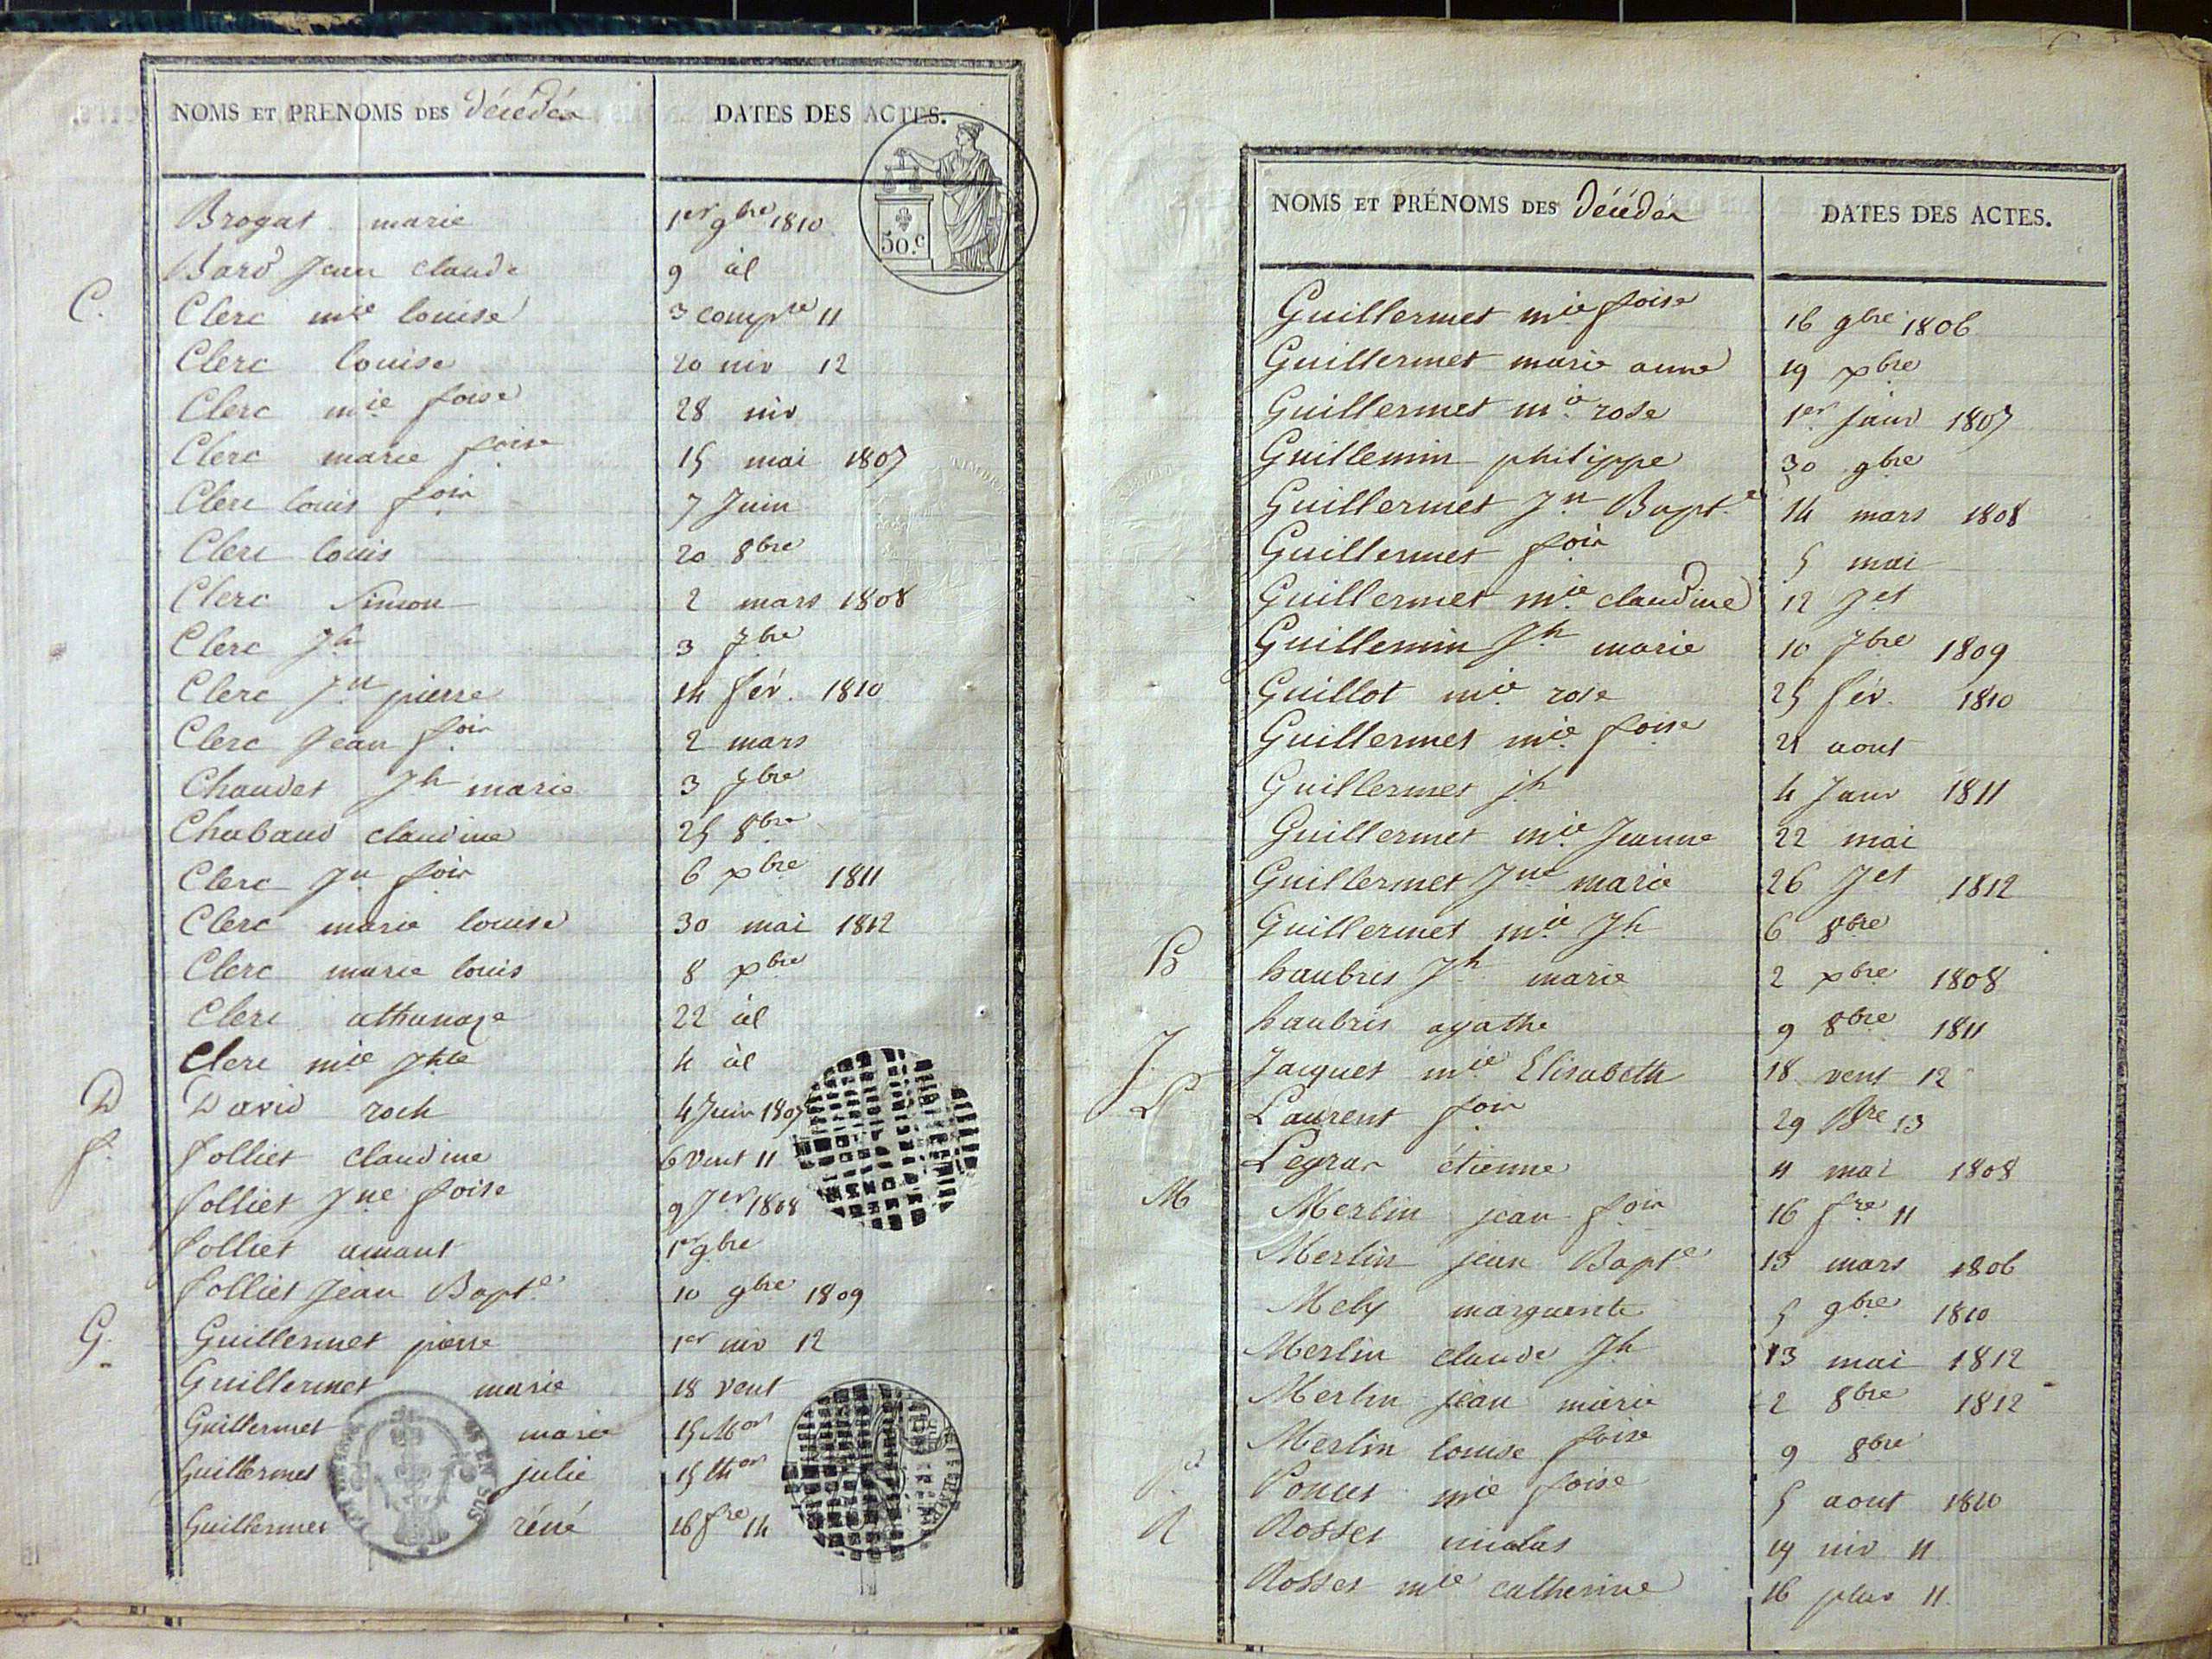 NOMS ET PRENOMS DES décédés
DATES DES ACTES.
50.c
Brogat marie 1er 9bre 1810
Bard Jean claude 9 dl
C. Clerc mie louise 3 compre 11
Clerc louise 20 niv 12
Clerc mie foise 28 niv
Clerc marie foise 15 mai 1807
Clerc louis fois 7 Juin
Clerc louis 20 8bre
Clerc Simon 2 mars 1808
Clerc Jh 3 7bre
Clerc Jn pierre 14 fév. 1810
Clerc Jean fois 2 mars
Chaudet Jh marie 3 7bre
Chabaud claudine 25 8bre
Clerc Jn fois 6 xbre 1811
Clerc marie louise 30 mai 1812
Clerc marie louis 8 xbre
Clerc athanaze 22 dl
Clerc mie Jhte 4 dl
D David roch 4 Juin 1807
f. folliet claudine 6 vent 11
folliet Jne foise 9 Jer 1808
folliet amant 1er 9bre
folliet Jean Bapte 10 9bre 1809
G. Guillermet pierre 1er niv 12
Guillermet marie 18 vent
Guillermet marie 15 Mor
Guillermet julie 15 thor
Guillermet réné 16 fre 14
NOMS ET PRÉNOMS DES décédés
DATES DES ACTES.
Guillermet mie foise 16 9bre 1806
Guillermet marie anne 19 xbre
Guillermet mie rose 1er janv 1807
Guillemin philippe 30 9bre
Guillermet Jn Bapte 14 mars 1808
Guillermet fois 5 mai
Guillermet mie claudine 12 Jet
Guillemin Jh marie 10 7bre 1809
Guillot mie rose 25 fév. 1810
Guillermet mie foise 21 aout
Guillermet jh 4 Janv 1811
Guillermet mie Jeanne 22 mai
Guillermet Jne marie 26 Jet 1812
Guillermet mie Jh 6 8bre
H haubris Jh marie 2 xbre 1808
haubris agathe 9 8bre 1811
J. Jacquet mie Elisabeth 18 vent 12
L Laurent fois 29 Bre 13
Legras étienne 4 mai 1808
M Merlin jean fois 16 fre 11
Merlin jean Bapte 13 mars 1806
Mely marguerite 5 9bre 1810
Merlin claude Jh 13 mai 1812
Merlin jean marie 2 8bre 1812
Merlin louise foise 9 8bre
P Poncet mie foise 5 aout 1810
R Rosset nicolas 19 niv 11
Rosset mie catherine 16 pluv 11